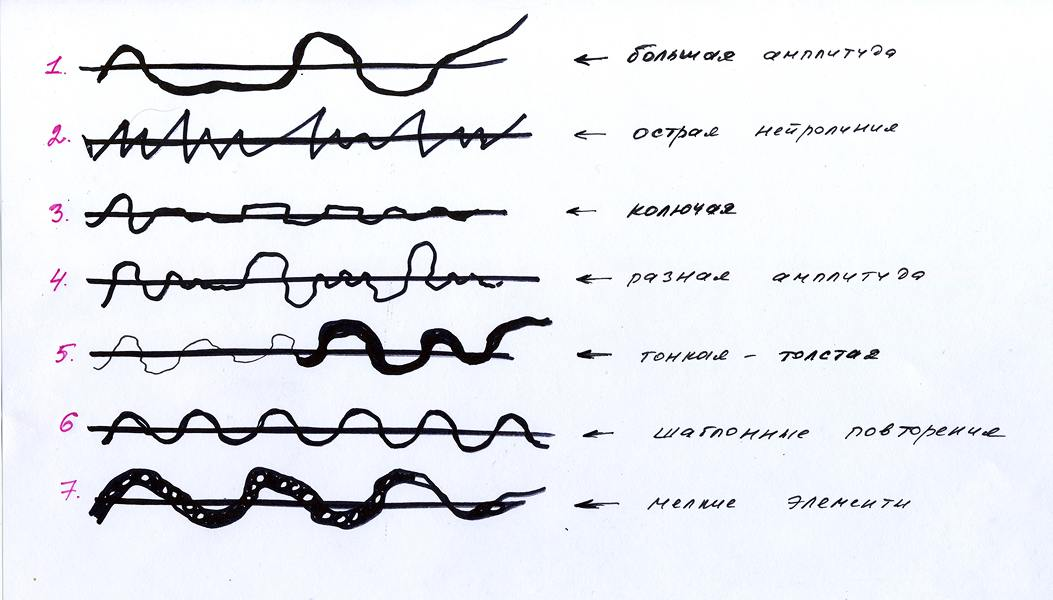 1. ← большая амплитуда
2. ← острая нейролиния
3. ← колючая
4. ← разная амплитуда
5. ← тонкая - толстая
6 ← шаблонные повторения
7. ← мелкие элементи